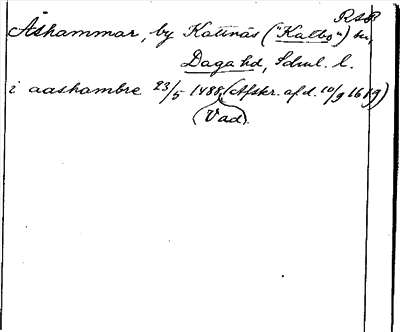 RAP
Åshammar, by Kattnäs ("Kalbo") sn,
Daga hd, Söml. l.
i aashambre 23/5 1488 (Afskr. af d. 10/9 1619)
(Vad).